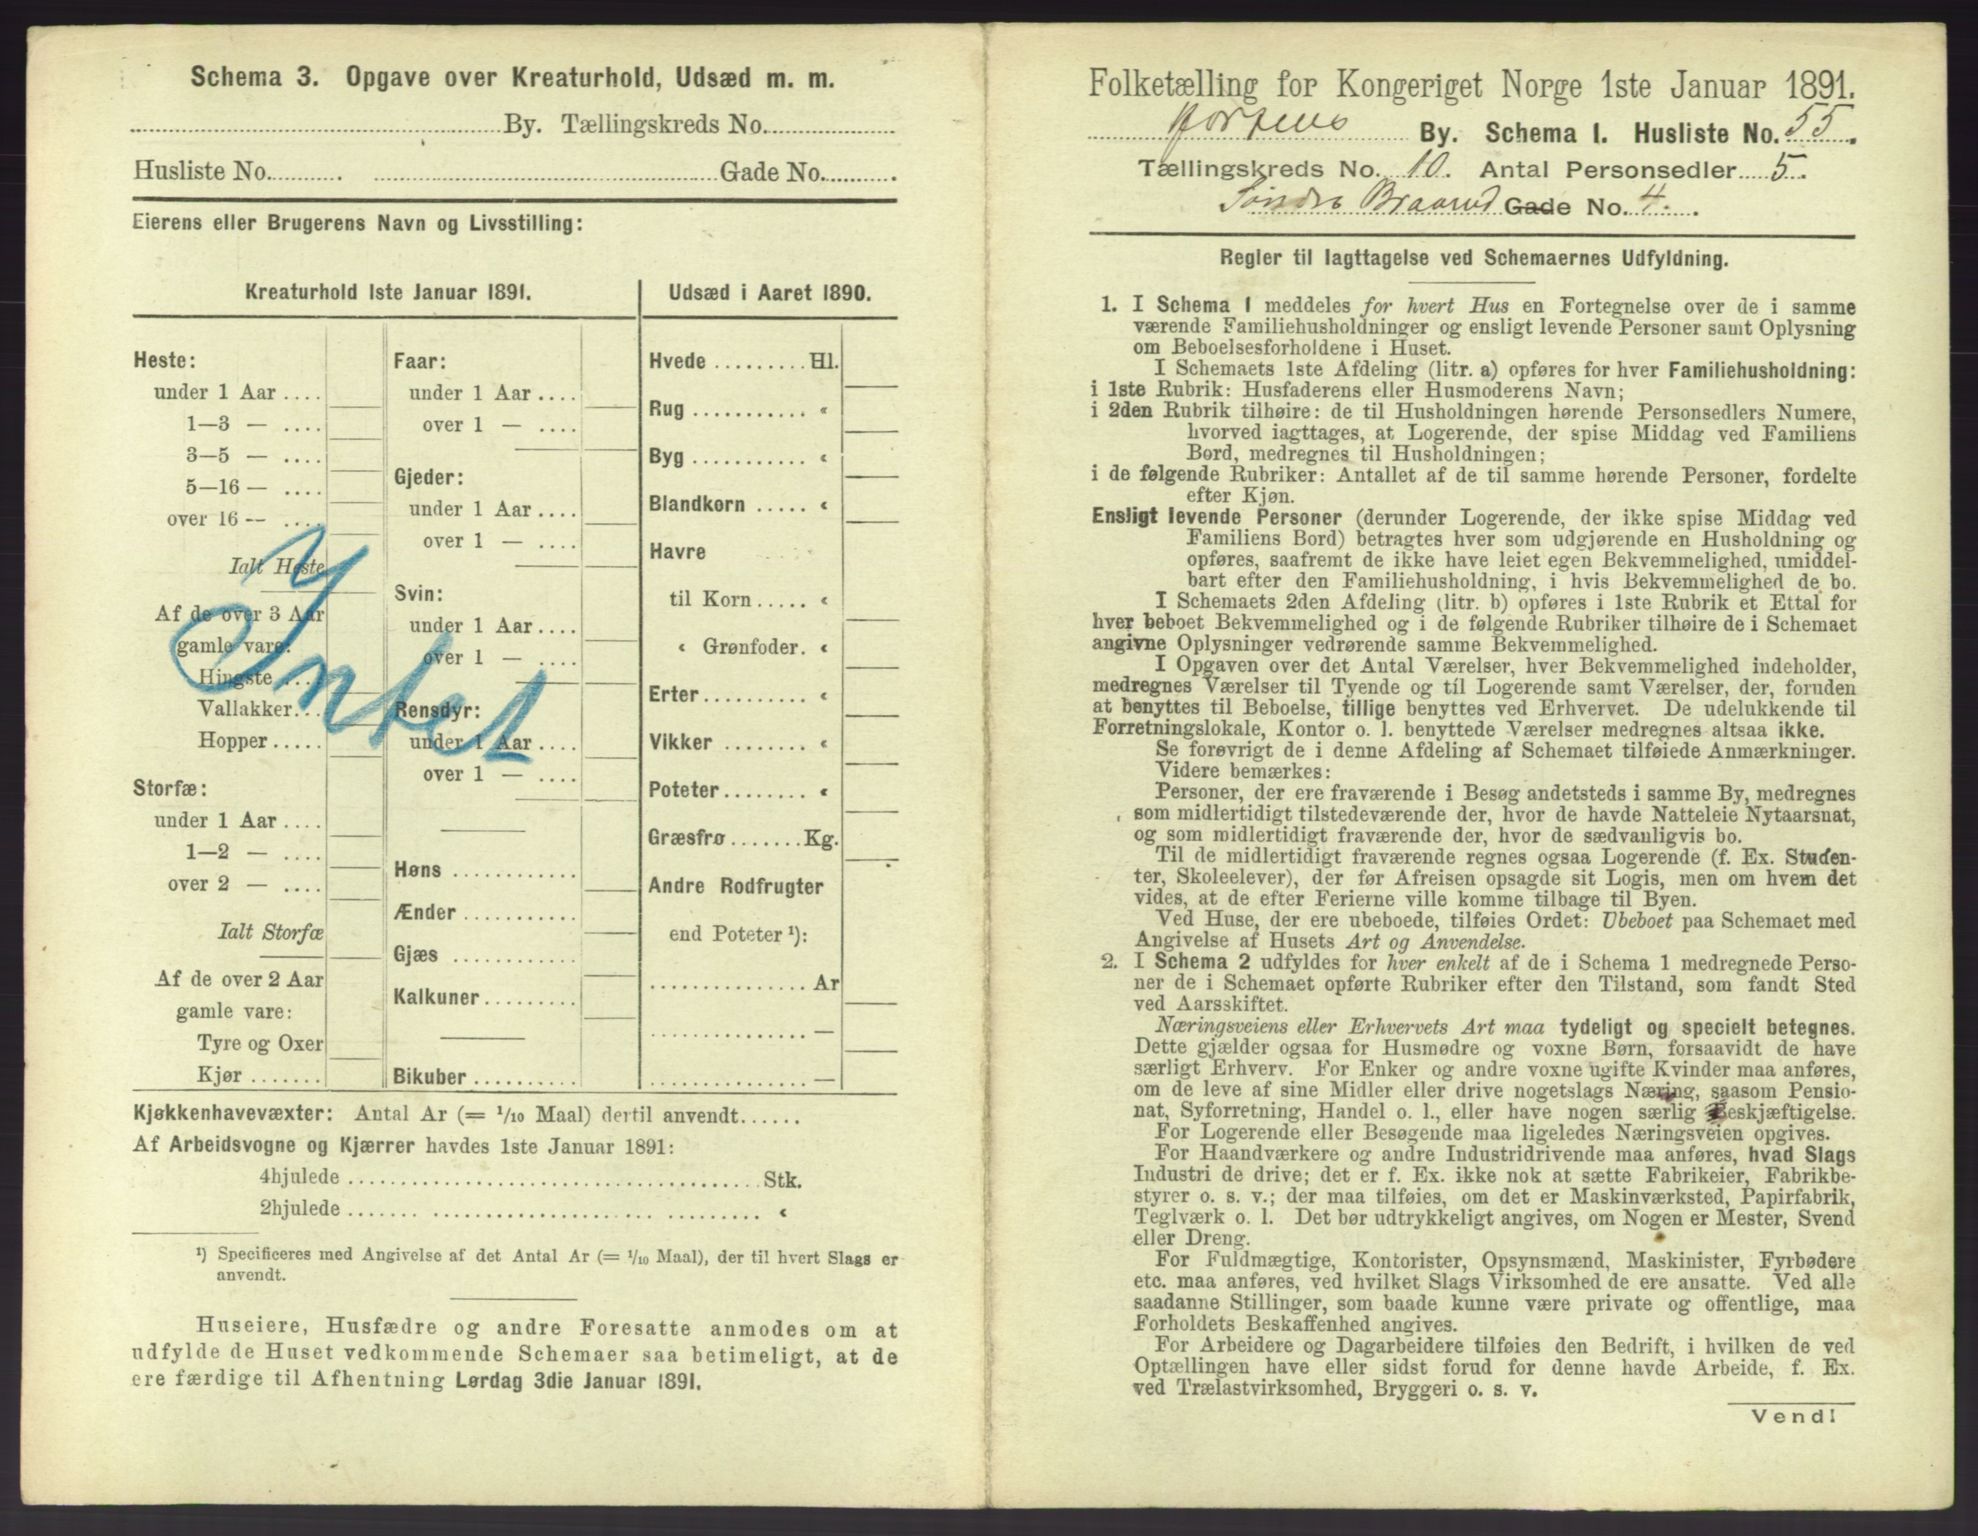 Schema 3. Opgave over Kreaturhold, Udsæd m. m.
By. Tællingskreds No.
Husliste No. Gade No.
Eierens eller Brugerens Navn og Livsstilling:
Kreaturhold 1ste Januar 1891.
Heste:
under 1 Aar
1—3 —
3—5 —
5—16 —
over 16 —
Ialt Heste
Af de over 3 Aar
gamle vare:
Hingste
Vallakker
Hopper
Storfæ:
under 1 Aar
1—2 —
over 2 —
Ialt Storfæ
Af de over 2 Aar
gamle vare:
Tyre og Oxer
Kjør
Faar:
under 1 Aar
over 1 —
Gjeder:
under 1 Aar
over 1 —
Svin:
under 1 Aar
over 1 —
Rensdyr:
under 1 Aar
over 1 —
Høns
Ænder
Gjæs
Kalkuner
Bikuber
Intet
Udsæd i Aaret 1890.
Hvede Hl.
Rug «
Byg «
Blandkorn «
Havre
til Korn «
« Grønfoder. «
Erter «
Vikker «
Poteter «
Græsfrø Kg.
Andre Rodfrugter
end Poteter ¹):
Ar
—
—
Kjøkkenhavevæxter: Antal Ar (= 1/10 Maal) dertil anvendt
Af Arbeidsvogne og Kjærrer havdes 1ste Januar 1891:
4hjulede Stk.
2hjulede «
¹) Specificeres med Angivelse af det Antal Ar (= 1/10 Maal), der til hvert Slags er
anvendt.
Huseiere, Husfædre og andre Foresatte anmodes om at
udfylde de Huset vedkommende Schemaer saa betimeligt, at de
ere færdige til Afhentning Lørdag 3die Januar 1891.
Folketælling for Kongeriget Norge 1ste Januar 1891.
Hortens By. Schema 1. Husliste No. 55.
Tællingskreds No. 10. Antal Personsedler 5.
Søndre Braarud Gade No. 4.
Regler til Iagttagelse ved Schemaernes Udfyldning.
1. I Schema 1 meddeles for hvert Hus en Fortegnelse over de i samme
værende Familiehusholdninger og ensligt levende Personer samt Oplysning
om Beboelsesforholdene i Huset.
I Schemaets 1ste Afdeling (litr. a) opføres for hver Familiehusholdning:
i 1ste Rubrik: Husfaderens eller Husmoderens Navn;
i 2den Rubrik tilhøire: de til Husholdningen hørende Personsedlers Numere,
hvorved iagttages, at Logerende, der spise Middag ved Familiens
Bord, medregnes til Husholdningen;
i de følgende Rubriker: Antallet af de til samme hørende Personer, fordelte
efter Kjøn.
Ensligt levende Personer (derunder Logerende, der ikke spise Middag ved
Familiens Bord) betragtes hver som udgjørende en Husholdning og
opføres, saafremt de ikke have leiet egen Bekvemmelighed, umiddel-
bart efter den Familiehusholdning, i hvis Bekvemmelighed de bo.
I Schemaets 2den Afdeling (litr. b) opføres i 1ste Rubrik et Ettal for
hver beboet Bekvemmelighed og i de følgende Rubriker tilhøire de i Schemaet
angivne Oplysninger vedrørende samme Bekvemmelighed.
I Opgaven over det Antal Værelser, hver Bekvemmelighed indeholder,
medregnes Værelser til Tyende og til Logerende samt Værelser, der, foruden
at benyttes til Beboelse, tillige benyttes ved Erhvervet. De udelukkende til
Forretningslokale, Kontor o. l. benyttede Værelser medregnes altsaa ikke.
Se forøvrigt de i denne Afdeling af Schemaet tilføiede Anmærkninger.
Videre bemærkes:
Personer, der ere fraværende i Besøg andetsteds i samme By, medregnes
som midlertidigt tilstedeværende der, hvor de havde Natteleie Nytaarsnat,
og som midlertidigt fraværende der, hvor de sædvanligvis bo.
Til de midlertidigt fraværende regnes ogsaa Logerende (f. Ex. Studen-
ter, Skoleelever), der før Afreisen opsagde sit Logis, men om hvem det
vides, at de efter Ferierne ville komme tilbage til Byen.
Ved Huse, der ere ubeboede, tilføies Ordet: Ubeboet paa Schemaet med
Angivelse af Husets Art og Anvendelse.
2. I Schema 2 udfyldes for hver enkelt af de i Schema 1 medregnede Perso-
ner de i Schemaet opførte Rubriker efter den Tilstand, som fandt Sted
ved Aarsskiftet.
Næringsveiens eller Erhvervets Art maa tydeligt og specielt betegnes.
Dette gjælder ogsaa for Husmødre og voxne Børn, forsaavidt de have
særligt Erhverv. For Enker og andre voxne ugifte Kvinder maa anføres,
om de leve af sine Midler eller drive nogetslags Næring, saasom Pensio-
nat, Syforretning, Handel o. l., eller have nogen særlig Beskjæftigelse.
For Logerende eller Besøgende maa ligeledes Næringsveien opgives.
For Haandværkere og andre Industridrivende maa anføres, hvad Slags
Industri de drive; det er f. Ex. ikke nok at sætte Fabrikeier, Fabrikbe-
styrer o. s. v.; der maa tilføies, om det er Maskinværksted, Papirfabrik,
Teglværk o. l. Det bør udtrykkeligt angives, om Nogen er Mester, Svend
eller Dreng.
For Fuldmægtige, Kontorister, Opsynsmænd, Maskinister, Fyrbødere
etc. maa anføres, ved hvilket Slags Virksomhed de ere ansatte. Ved alle
saadanne Stillinger, som baade kunne være private og offentlige, maa
Forholdets Beskaffenhed angives.
For Arbeidere og Dagarbeidere tilføies den Bedrift, i hvilken de ved
Optællingen have eller sidst forud for denne havde Arbeide, f. Ex.
ved Trælastvirksomhed, Bryggeri o. s. v.
Vend!